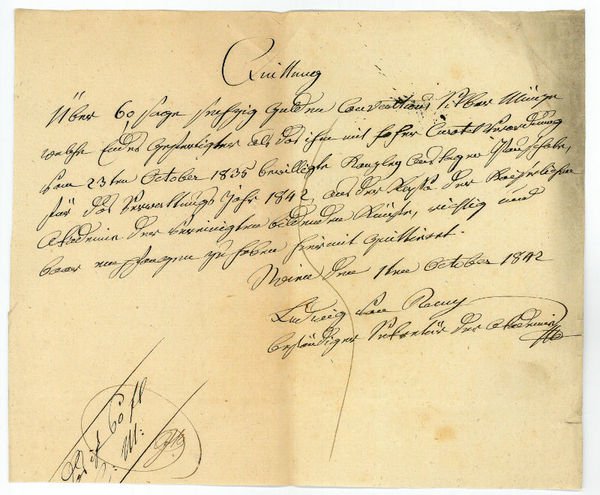 Quittung
Über 60 sage sechzig Gulden Conventions Silber Münze
welche Endes Gefertigter als das ihm mit hoher Curatel Verordnung
vom 23ten October 1835 bewilligte Kanzley Auslagen Pauschale,
für das Verwaltungs Jahr 1842, aus der Kasse der Kaiserlichen
Akademie der vereinigten bildenden Künste, richtig und
baar empfangen zu haben hiermit quittiret.
Wien den 1ten October 1842
Ludwig von Remy
beständiger Sekretär der Akademie
Das ist 60 fl
C. M: